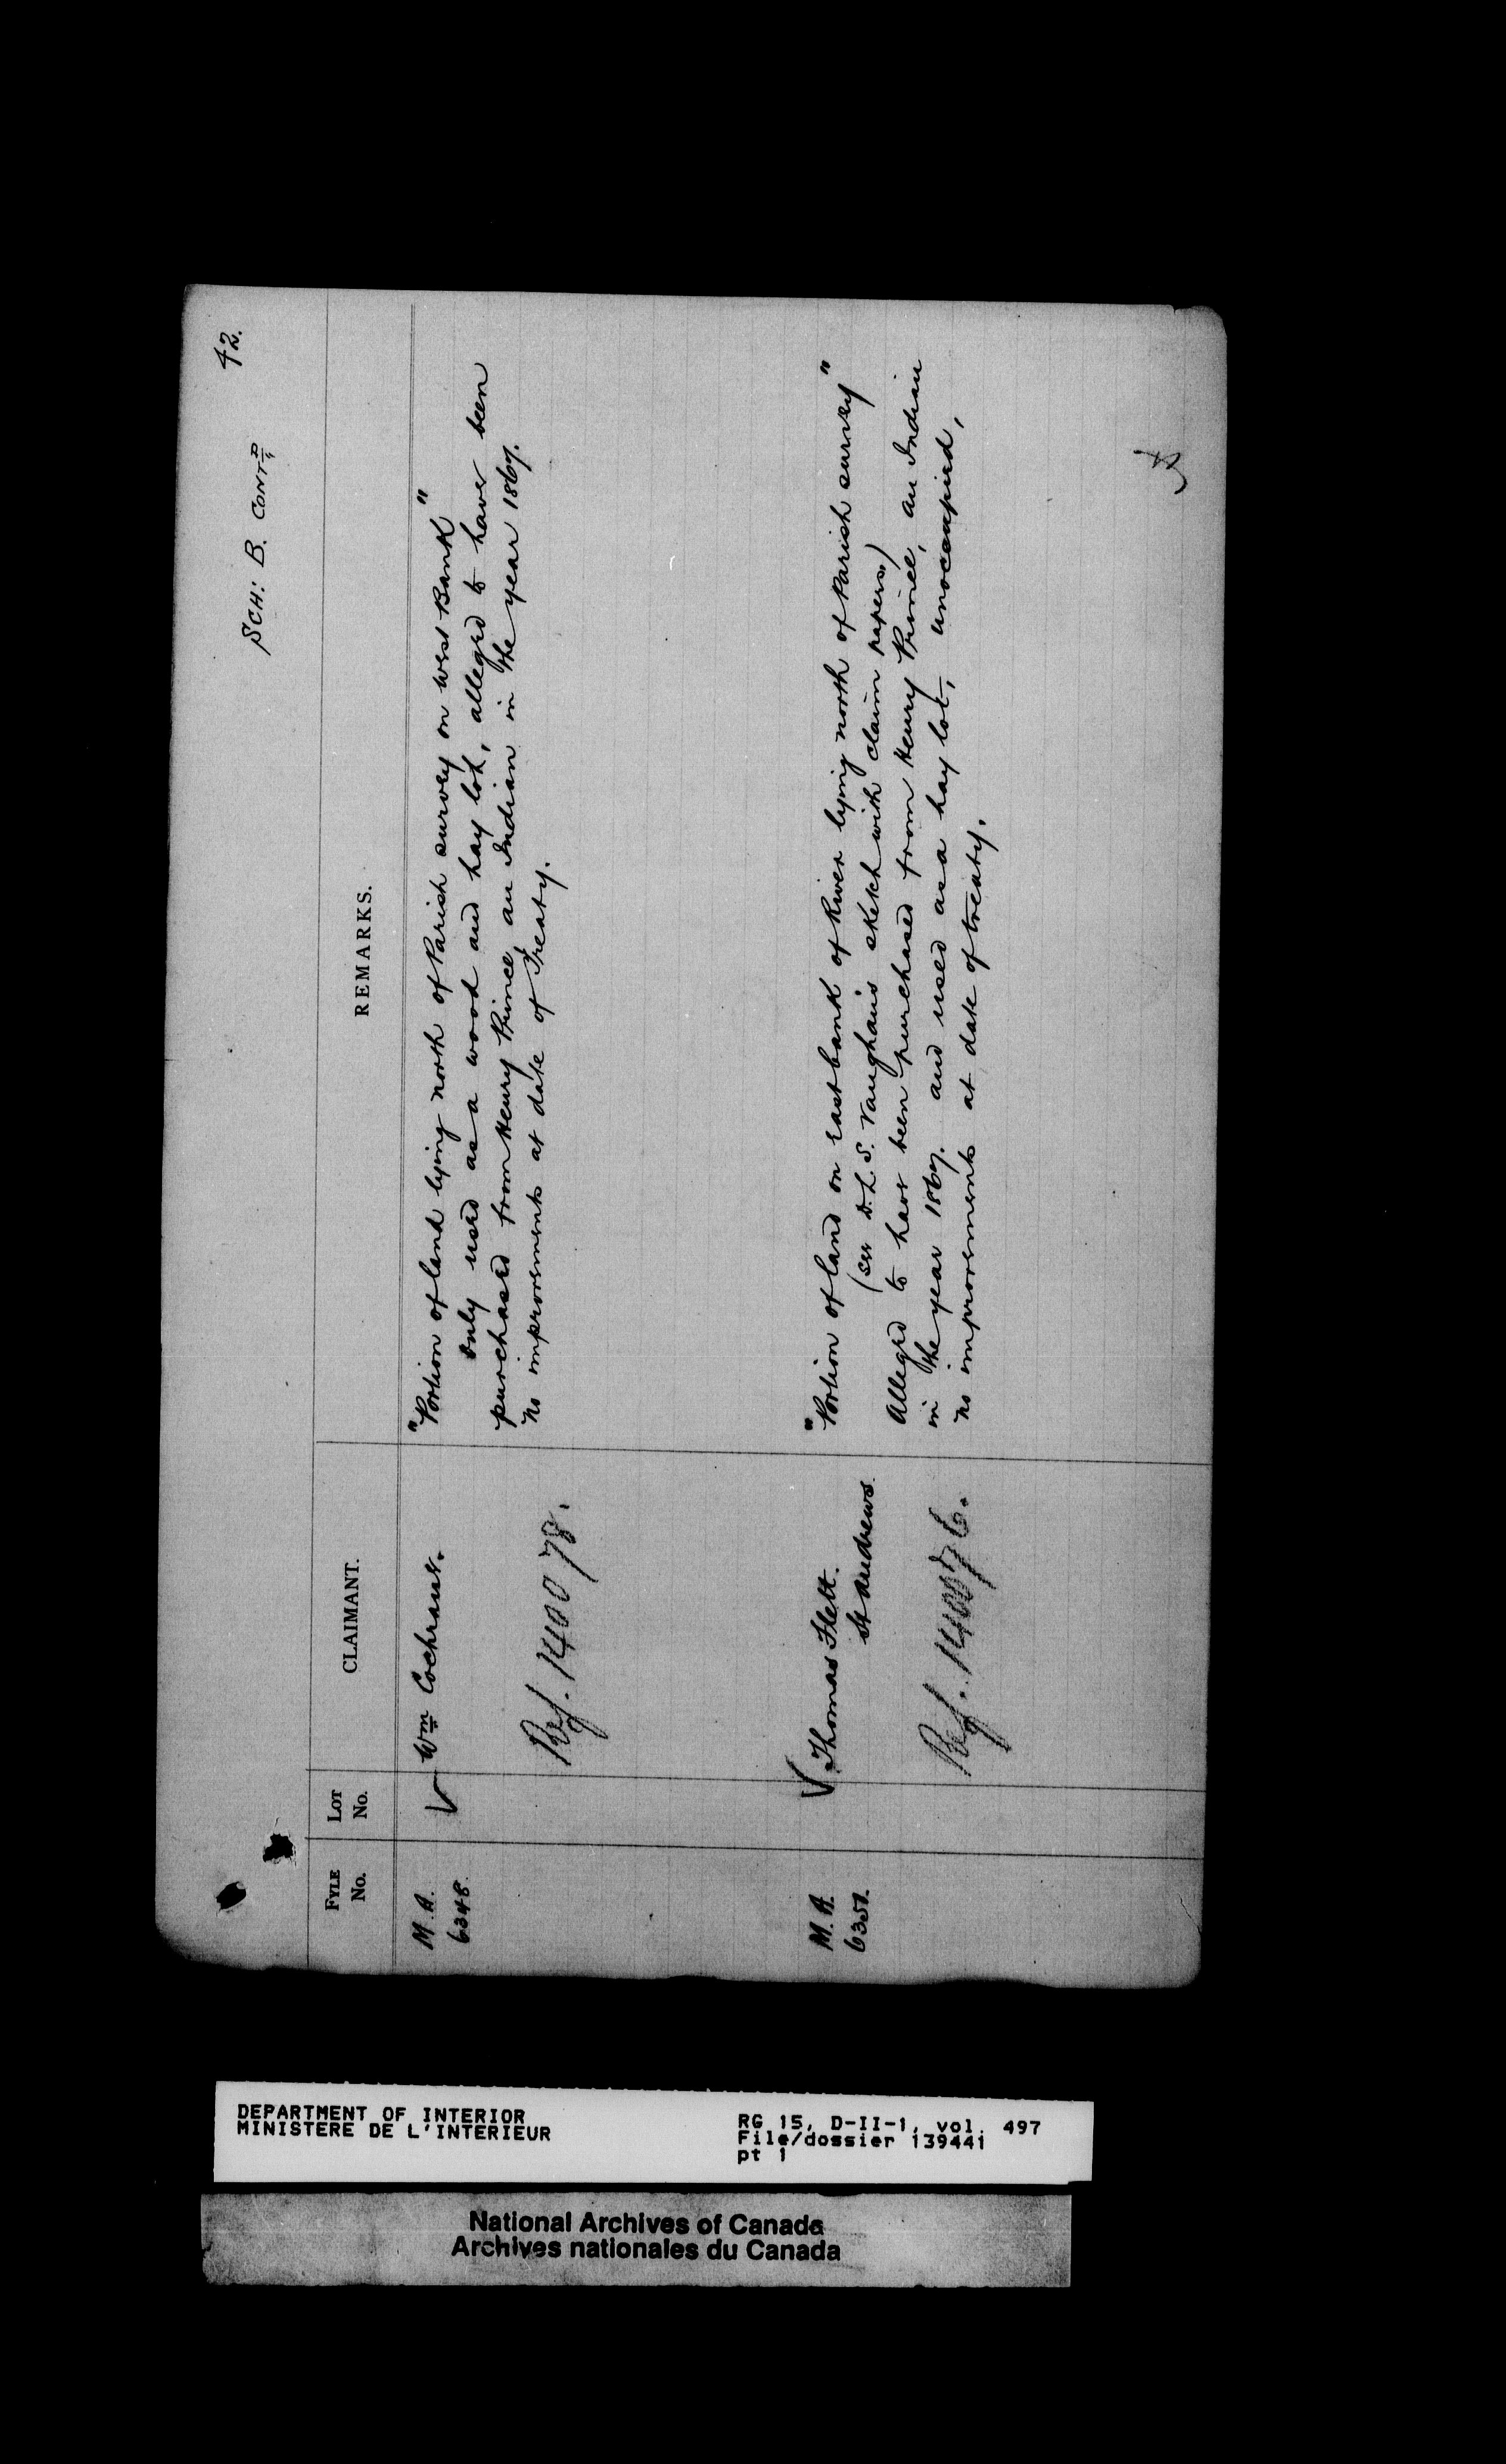 42.
SCH: B. CONTD
FYLE No.
LOT No.
CLAIMANT.
REMARKS.
M.A. 6348.
Wm Cochrane.
Ref. 140078.
"Portion of land lying north of Parish survey on West Bank"
only used as a wood and hay lot, alleged to have been
purchased from Henry Prince, an Indian in the year 1867.
No improvements at date of Treaty.
M.A.
Thomas Flett.
St Andrews
Ref. 140076.
"Portion of land on east bank of River lying north of Parish survey"
(see D.L.S. Vaughan's sketch with claim papers)
Alleged to have been purchased from Henry Prince, an Indian
in the year 1867. and used as a hay lot, unoccupied,
no improvements at date of treaty.
DEPARTMENT OF INTERIOR
MINISTERE DE L'INTERIEUR
RG 15, D-II-1, vol. 497
File/dossier 139441
pt 1
National Archives of Canada
Archives nationales du Canada